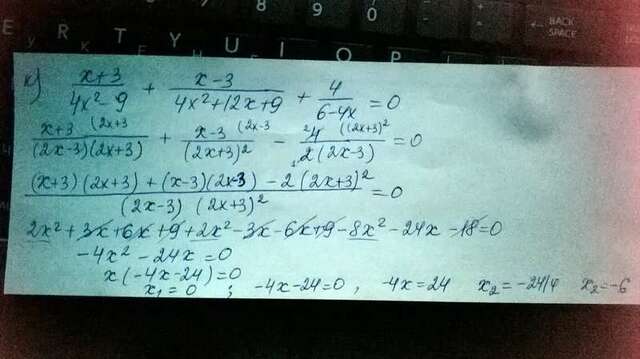 8 9 0
E R T Y U I O P
BACK SPACE
к) (x+3)/(4x²-9) + (x-3)/(4x²+12x+9) + 4/(6-4x) = 0
(x+3 (2x+3)/((2x-3)(2x+3)) + (x-3 (2x-3)/((2x+3)²) - (²4 ((2x+3)²)/(₁2(2x-3)) = 0
((x+3)(2x+3)+(x-3)(2x-3)-2(2x+3)²)/((2x-3)(2x+3)²) = 0
2x²+3x+6x+9+2x²-3x-6x+9-8x²-24x-18=0
-4x²-24x=0
x(-4x-24)=0
x₁=0 ; -4x-24=0, -4x=24 x₂=-24/4 x₂=-6